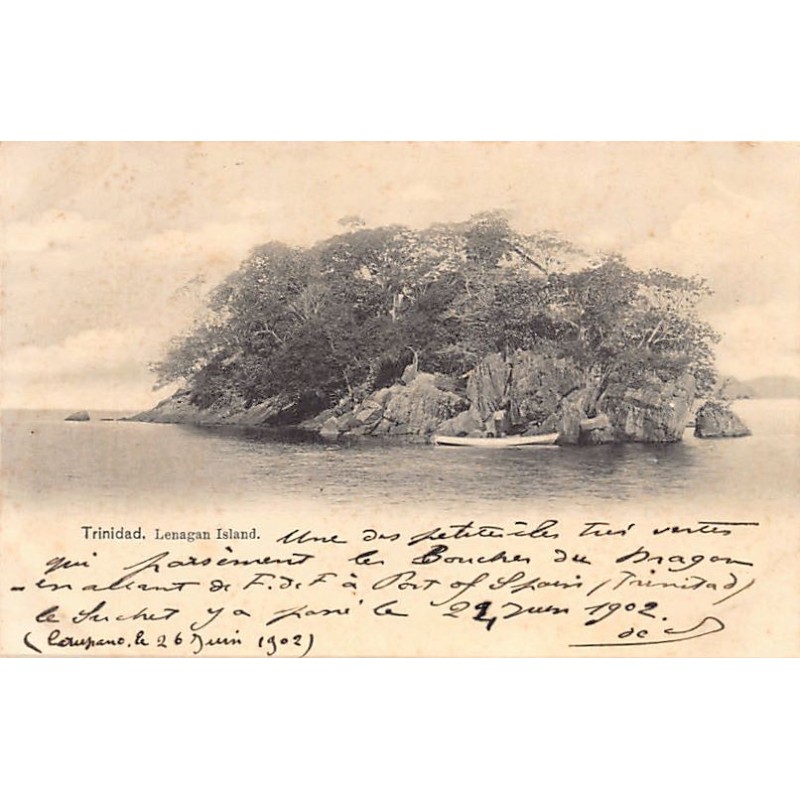 Trinidad. Lenagan Island. Une des petites îles très vertes
qui parsèment les Bouches du Dragon
en allant de F. de F à Port of Spain (Trinidad)
le Suchet y a passé le 22 Juin 1902.
(Carupano, le 26 Juin 1902)